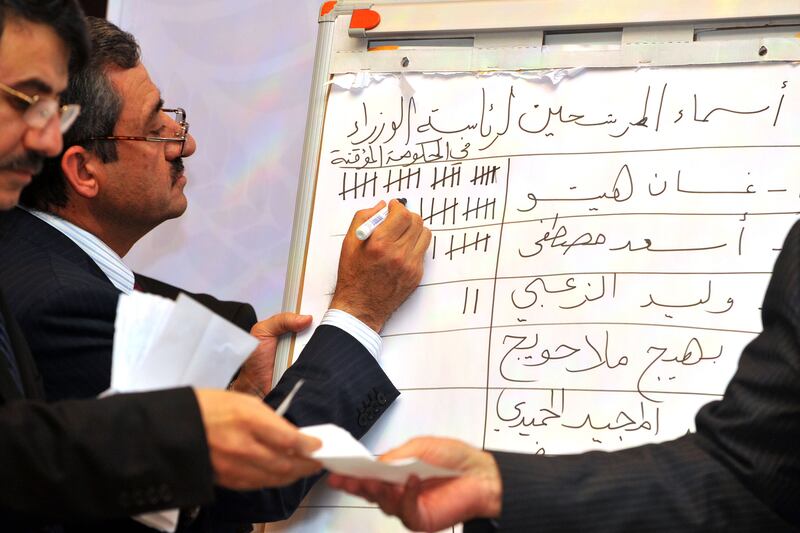 أسماء المرشحين لرئاسة الوزراء
في الحكومة المؤقتة
- غسان هيتو
- أسعد مصطفى
وليد الزعبي
بهيج ملا حويج
المجيد الحميدي